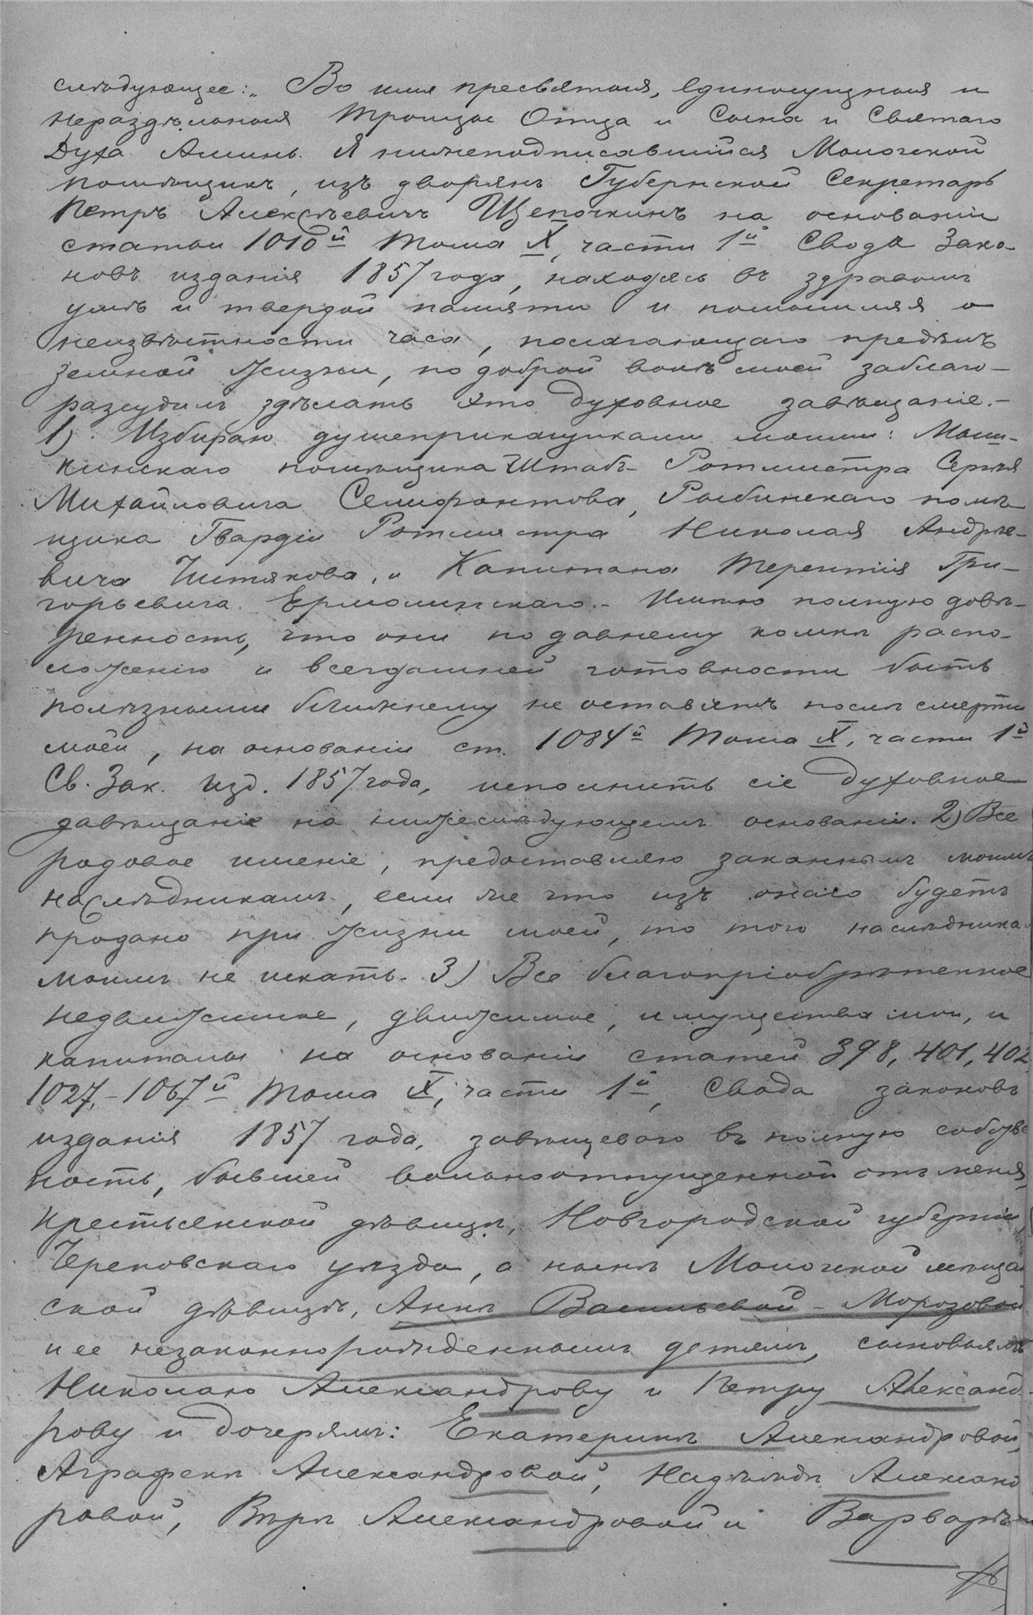 слѣдующее: „Во имя пресвятыя, единосущныя и
нераздѣльныя Троицы Отца и Сына и Святаго
Духа Аминь. Я нижеподписавшійся Мологской
помѣщикъ, изъ дворянъ Губернской Секретарь
Петръ Алексѣевичъ Щепочкинъ на основаніи
статьи 1010й Тома X, части 1й Свода Зако-
новъ изданія 1857 года, находясь въ здравомъ
умѣ и твердой памяти и помышляя о
неизвѣстности часа, полагающаго предѣлъ
земной жизни, по доброй волѣ моей заблаго-
разсудилъ здѣлать это духовное завѣщаніе.-
1). Избираю душеприкащиками моими: Мыш-
кинскаго помѣщика Штабъ-Ротмистра Сергѣя
Михайловича Селифонтова, Рыбинскаго помѣ-
щика Гвардіи Ротмистра Николая Андрее-
вича Тишякова, и Капитана Терентія Гри-
горьевича Ермолинскаго.- Имѣю полную довѣ-
ренность, что они по давнему комнѣ распо-
ложенію и всегдашней готовности быть
полѣзными ближнему не оставятъ послѣ смерти
моей, на основаніи ст. 1084й Тома X, части 1й
Св. Зак. изд. 1857 года, исполнить сіе духовное
завѣщаніе на нижеслѣдующемъ основаніи. 2) Все
родовое имѣніе, предоставляю законнымъ моимъ
наслѣдникамъ, если же что изъ онаго будетъ
продано при жизни моей, то того наслѣдника
моимъ не искать. 3) Все благопріобрѣтенное
недвижимое, движимое, имущества мои, и
капиталы на основаніи статей 398, 401, 402
1027,-1067й Тома X, части 1й, Свода законовъ
изданія 1857 года, завѣщеваю въ полную собств
ность, бывшей вольноотпущенной отъ меня,
крестьянской дѣвицѣ, Новгородской губерніи
Череповскаго уѣзда, а нынѣ Мологской мѣща
ской дѣвицѣ, Аннѣ Васильевой-Морозовой
и ее незаконнорожденнымъ дѣтямъ, сыновьямъ
Николаю Александрову и Петру Александ-
рову и дочерямъ: Екатеринѣ Александровой,
Аграфенѣ Александровой, Надѣждѣ Александ
ровой, Вѣрѣ Александровой и Варварѣ